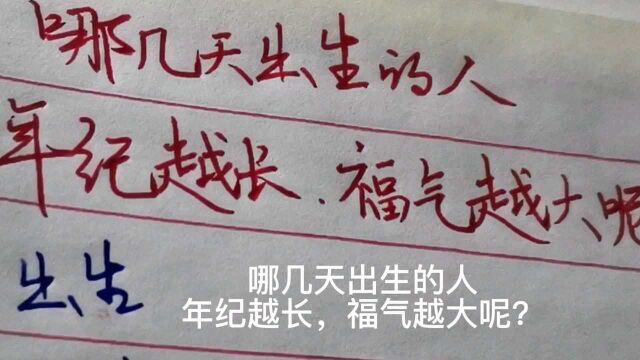 哪几天出生的人
年纪越长.福气越大呢
出生
哪几天出生的人
年纪越长，福气越大呢?